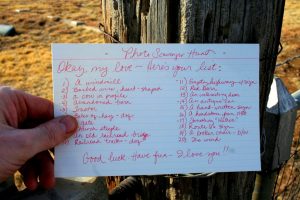 Photo Scavenger Hunt
Okay, my love - Here's your list:
1) A windmill
2) Barbed wire, heart-shaped
3) a cow in profile
4) Abandoned barn
5) Tractor
6) dog
7) Gate
8) Church steeple
9) An old railroad bridge
10) Railroad tracks -
11) Empty highway
12) Red Barn
13) An interesting door
14) An antique car
15) A hand-written sign
16) A
17)
18) Route 66 Sign
19) A broken chair -
20) The wind
Good luck. Have fun - I love you!!!